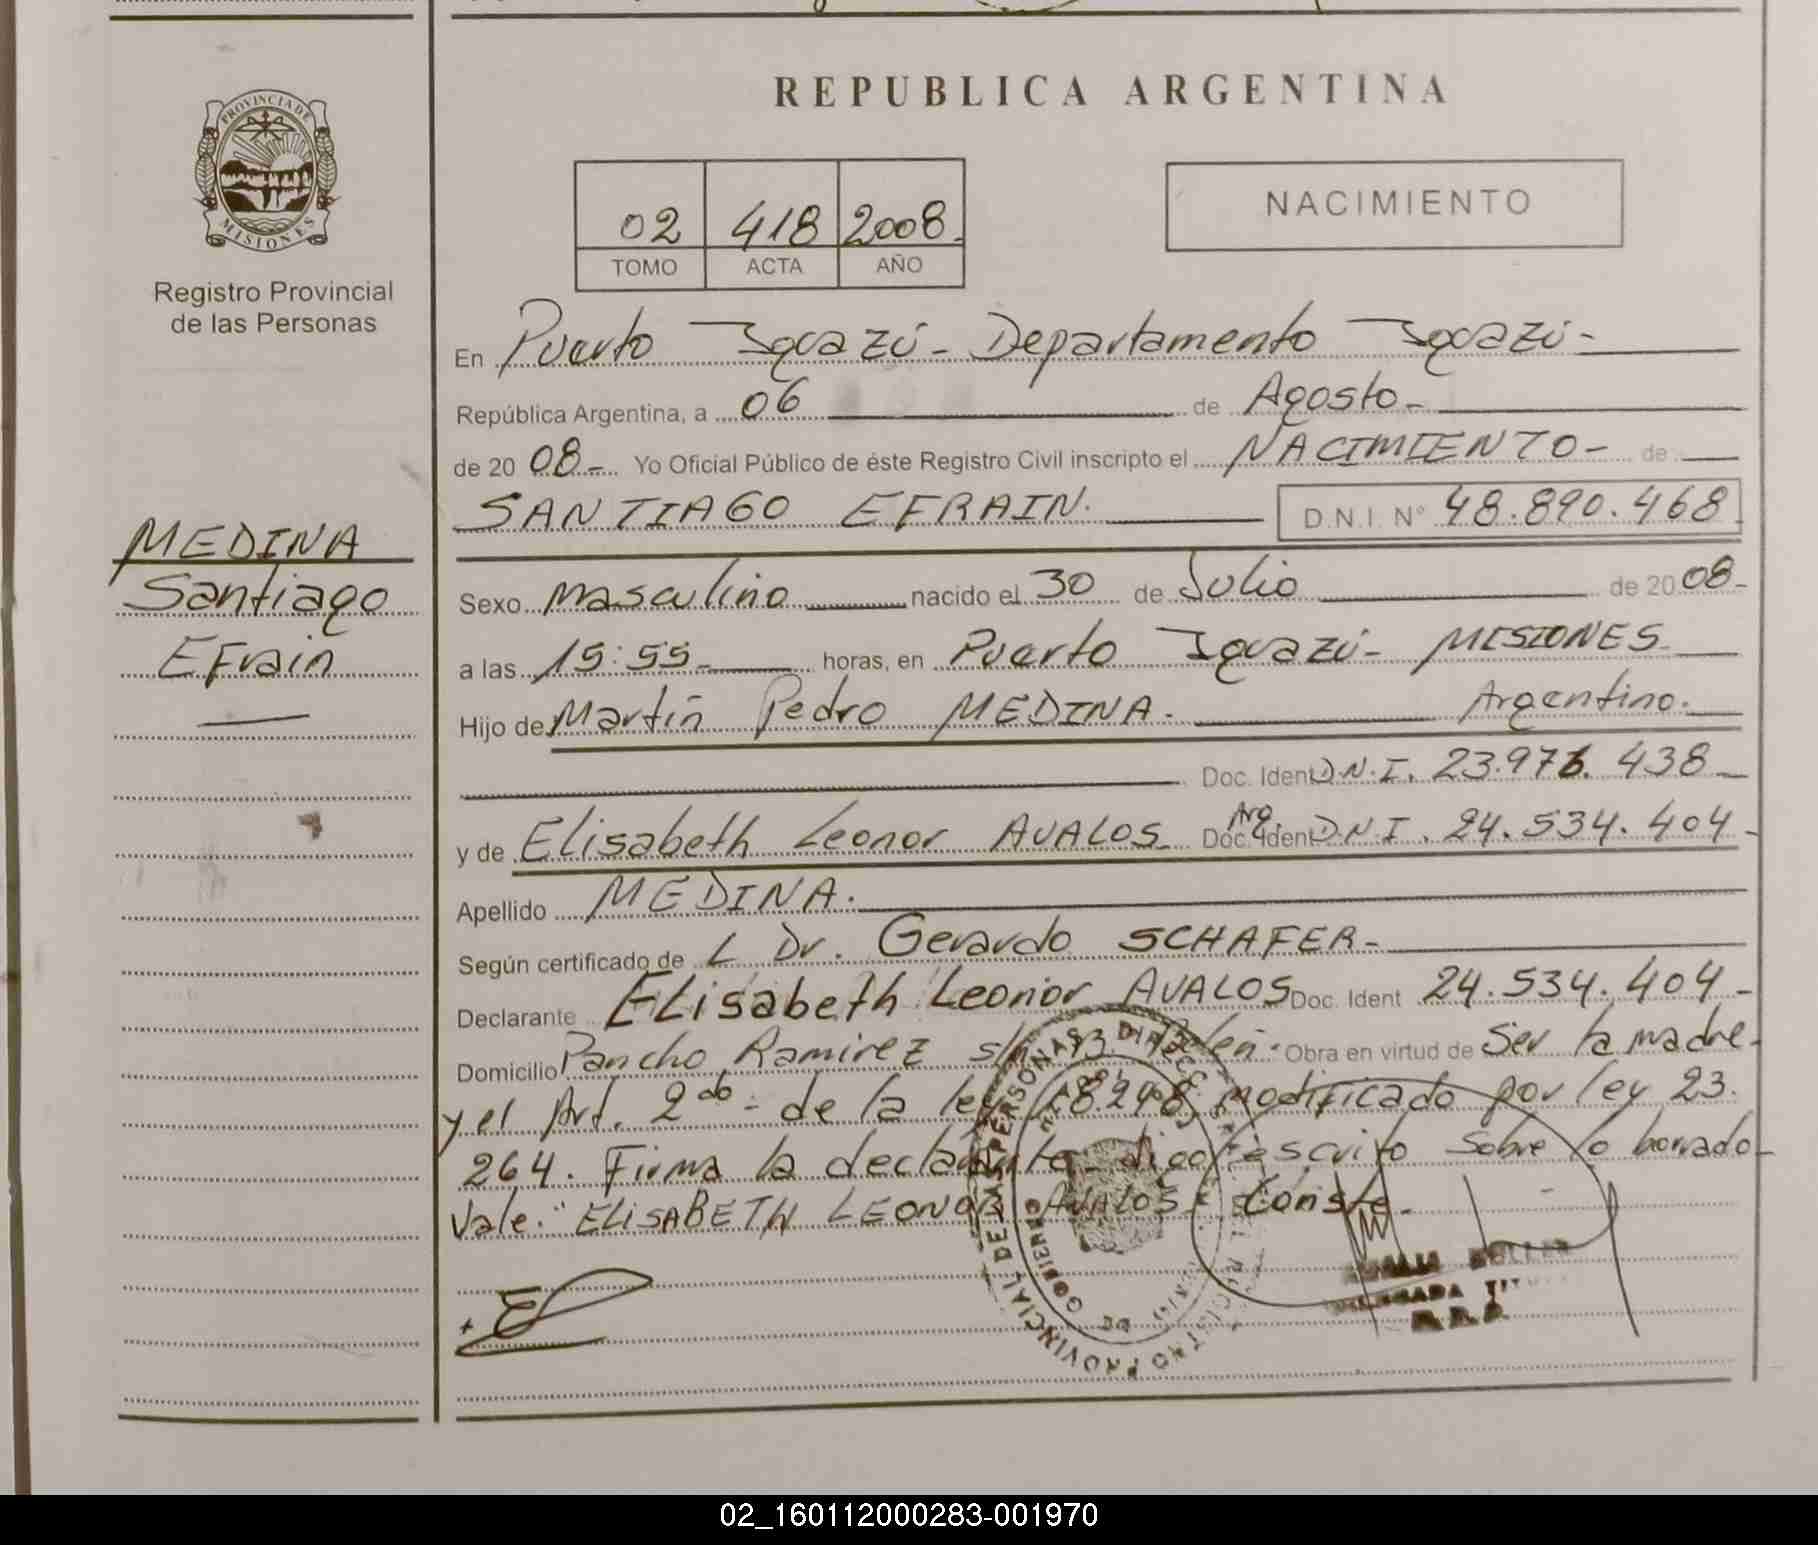 REPUBLICA ARGENTINA
PROVINCIA DE MISIONES
Registro Provincial
de las Personas
02 418 2008
TOMO ACTA AÑO
NACIMIENTO
En Puerto Iguazú - Departamento Iguazú -
República Argentina, a 06 de Agosto -
de 20 08 - Yo Oficial Público de éste Registro Civil inscripto el NACIMIENTO - de
SANTIAGO EFRAIN. D.N.I. N° 48.890.468
MEDINA
Santiago
Efrain
Sexo masculino nacido el 30 de Julio de 20 08 -
a las 15:55 - horas, en Puerto Iguazú - MISIONES.
Hijo de Martín Pedro MEDINA. Argentino.
Doc. Ident D.N.I. 23.971.438
y de Elisabeth Leonor AVALOS Arg. Doc. Ident D.N.I. 24.534.404 -
Apellido MEDINA.
Según certificado de L Dr. Gerardo SCHAFER -
Declarante Elisabeth Leonor AVALOS Doc. Ident 24.534.404 -
Domicilio Pancho Ramirez s/n Obra en virtud de Ser la madre
y el Art. 2do - de la ley 18.248 modificado por ley 23.
264. Firma la declarante - digo escrito sobre lo borrado
Vale: "ELISABETH LEONOR AVALOS" Conste.
REGISTRO PROVINCIAL DE LAS PERSONAS
DE GOBIERNO
02_160112000283-001970